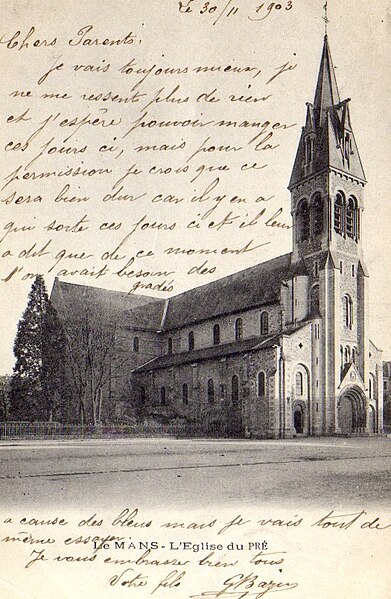 Le 30/11 1903
Chers Parents.
Je vais toujours mieux, je
ne me ressents plus de rien
et j'espère pouvoir manger
ces jours ci, mais pour la
permission je crois que ce
sera bien dur car il y en a
qui sorte ces jours ci et il leur
a dit que de ce moment
l'on avait besoin des
gradés
a cause des bleus mais je vais tout de
même essayer.
Le MANS - L'Eglise du PRÉ
Je vous embrasse bien tous
Votre fils G Bazin